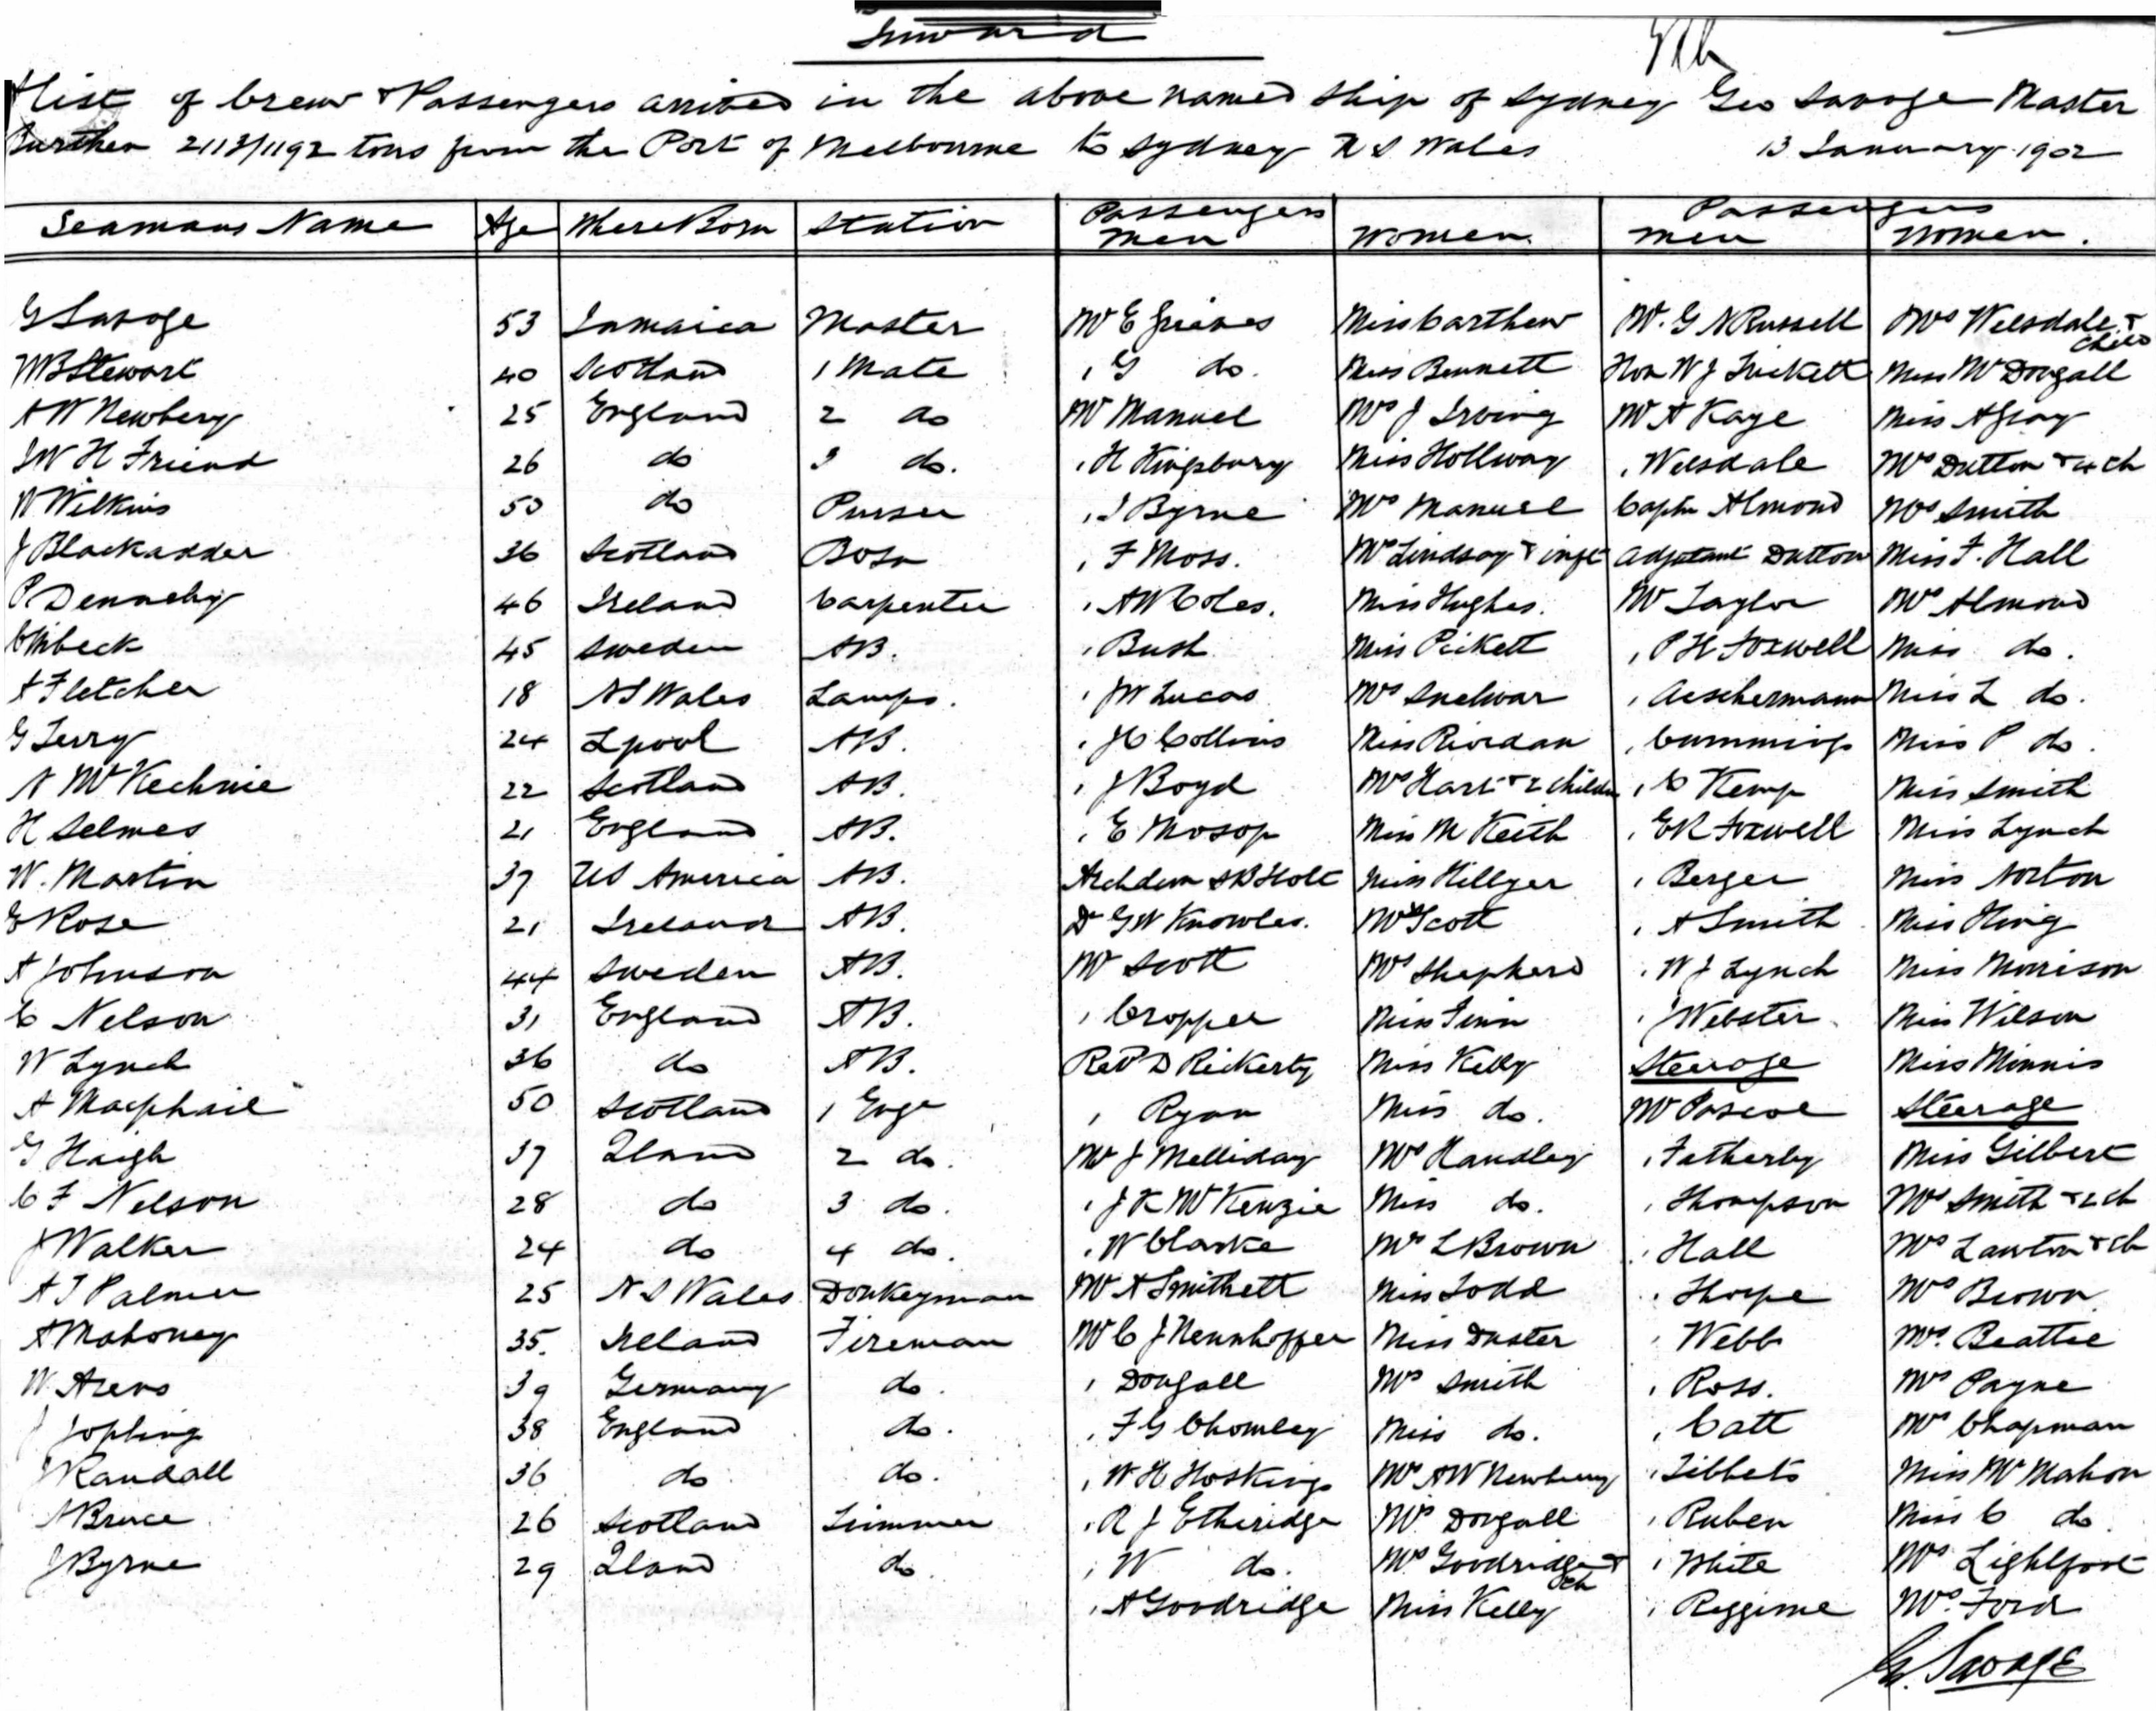 Inward
A list of Crew & Passengers arrived in the above named ship of Sydney Geo Savage Master
Burthen 2113/1192 tons from the Port of Melbourne to Sydney N S Wales 13 January 1902
Seamans Name Age Where Born Station Passengers Men Women Passengers Men Women.
G Savage 53 Jamaica Master Mr E Grieves Miss Carthew Mr. G N Russell Mrs Welsdale & Child
W B Stewart 40 Scotland 1 Mate , G do. Miss Bennett Hon W J Trickett Miss McDougall
A W Newbery 25 England 2 do Mr Manuel Mrs J Irving Mr A Kaye Miss A Gray
J W H Friend 26 do 3 do. , H Kingsbury Miss Hollway , Welsdale Mrs Dutton & 4 ch
W Wilkins 50 do Purser , J Byrne Mrs Manuel Captn Almond Mrs Smith
J Blackadder 36 Scotland Bosn , F Moss. Mrs Lindsay & inft Adjutant Dutton Miss F. Hall
P Dennehy 46 Ireland Carpenter , A W Coles. Miss Hughes. Mr Taylor Mrs Almond
45 Sweden AB. , Bush Miss Pickett , P H Foxwell Miss do.
A Fletcher 18 N S Wales Lamps. , J W Lucas Mrs , Aeschermann Miss L do.
G Terry 24 Lpool AB. , J C Collins Miss Riordan , Cummings Miss P do.
A McKechnie 22 Scotland AB. , J Boyd Mrs Hart & 2 childn , C Kemp Miss Smith
H Selmes 21 England AB. , E Mosop Miss M Keith , E R Foxwell Miss Lynch
W. Martin 37 US America AB. Archdecn S B Holt Miss Hillyer , Berger Miss Norton
E Rose 21 Ireland AB. Dr G W Knowles. Mrs Scott , A Smith Miss King
A Johnson 44 Sweden AB. Mr Scott Mrs Shepherd , W J Lynch Miss Morrison
C Nelson 31 England AB. , Cropper Miss Finn , J Webster Miss Wilson
W Lynch 36 do AB. Rev D Rickerty Miss Kelly Steerage Miss Minnis
A Macphail 50 Scotland 1 Engr , Ryan Miss do. Mr Pascoe Steerage
G Haigh 37 Qland 2 do. Mr J Melliday Mrs Handley , Fatherly Miss Gilbert
C F Nelson 28 do 3 do. , J K McKenzie Miss do. , Thompson Mrs Smith & 2 ch
J Walker 24 do 4 do. , W Clarke Mrs L Brown , Hall Mrs Lawton & ch
A J Palmer 25 N S Wales Donkeyman Mr A Smithett Miss Todd , Thorpe Mrs Brown
A Mahoney 35. Ireland Fireman Mr C J Nennhopper Miss Duster , Webb Mrs. Beattie
W Arens 39 Germany do. , Dougall Mrs Smith , Ross. Mrs Payne
J Jopling 38 England do. , F G Chomley Miss do. , Catt Mrs Chapman
J Randall 36 do do. , W H Hoskings Mrs A W Newbury , Tibbets Miss McMahon
A Bruce 26 Scotland Trimmer , R J Etheridge Mrs. Dougall , Ruben Miss C do.
J Byrne 29 Qland do. , W do. Mrs. Goodridge & ch , White Mrs Lightfoot
, A Goodridge Miss Kelly , Reggime Mrs. Ford
G. Savage